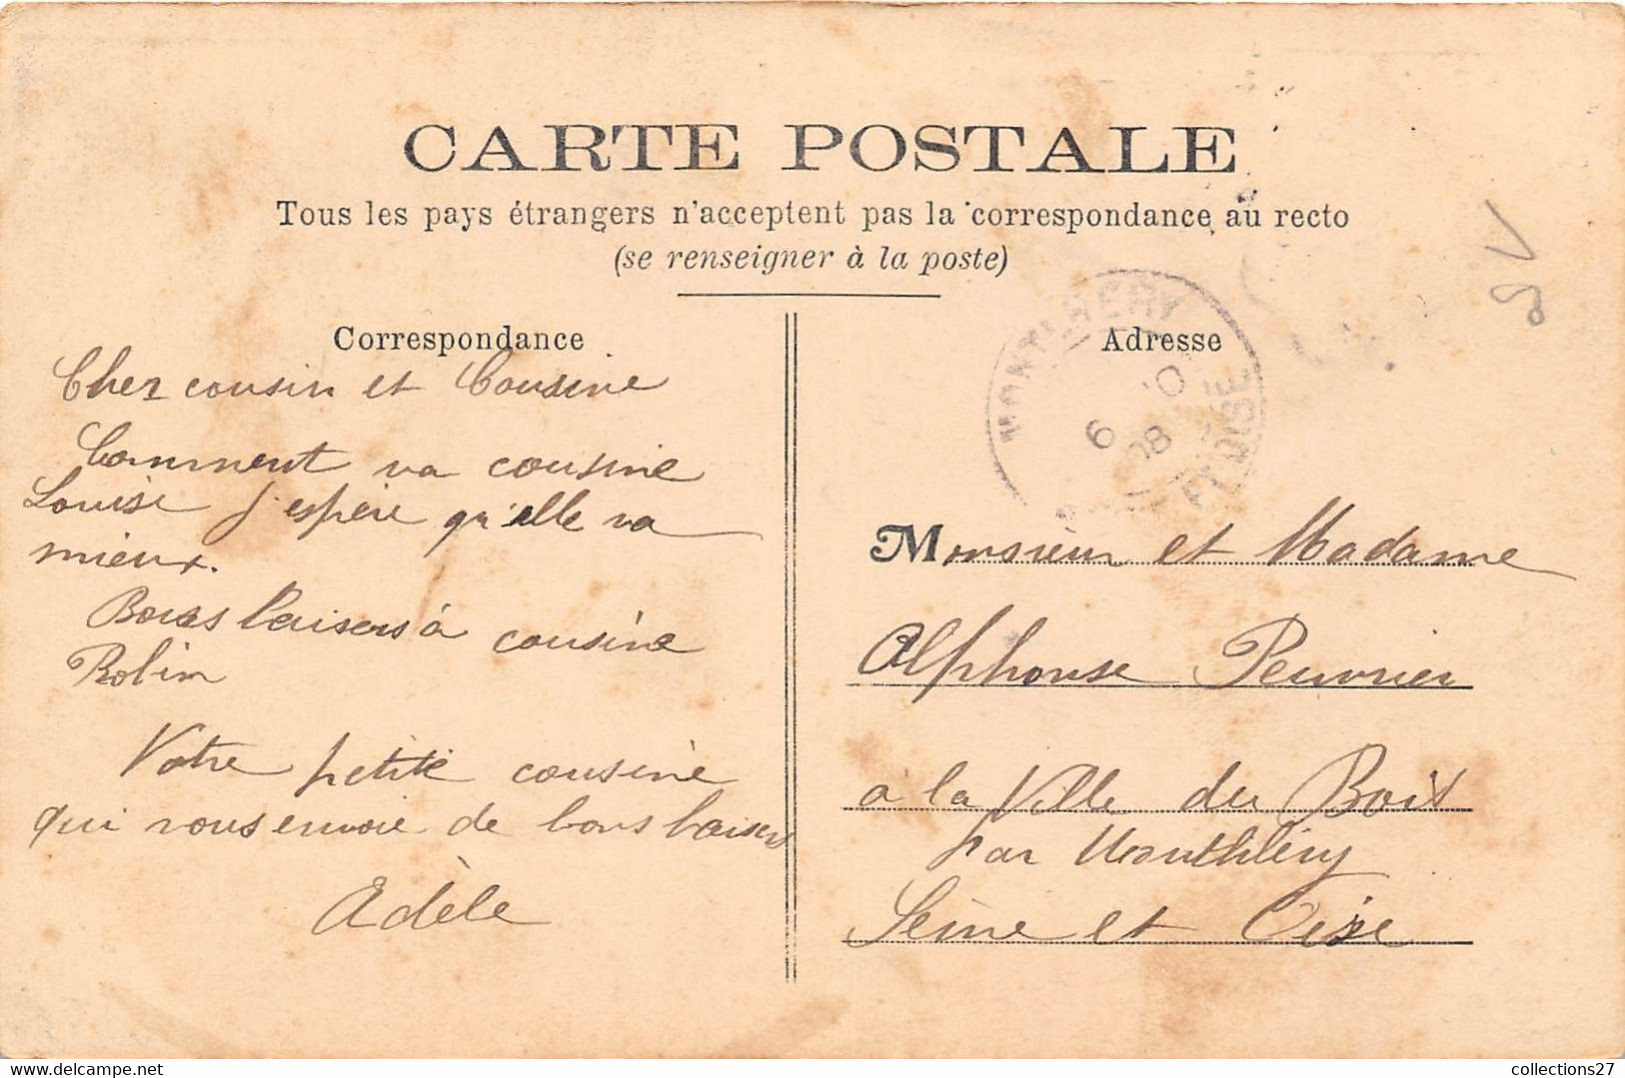 CARTE POSTALE
Tous les pays étrangers n'acceptent pas la correspondance au recto
(se renseigner à la poste)
Correspondance
Cher cousin et Cousine
Comment va cousine
Louise j'espère qu'elle va
mieux.
Bons baisers à cousine
Robin
Votre petite cousine
qui vous envoie de bons baisers
Adèle
Adresse
MONTLHERY
6
08
ET OISE
Monsieur et Madame
Alphonse Peuvrier
a la Ville du Bois
par Monthléry
Seine et Oise
collections27